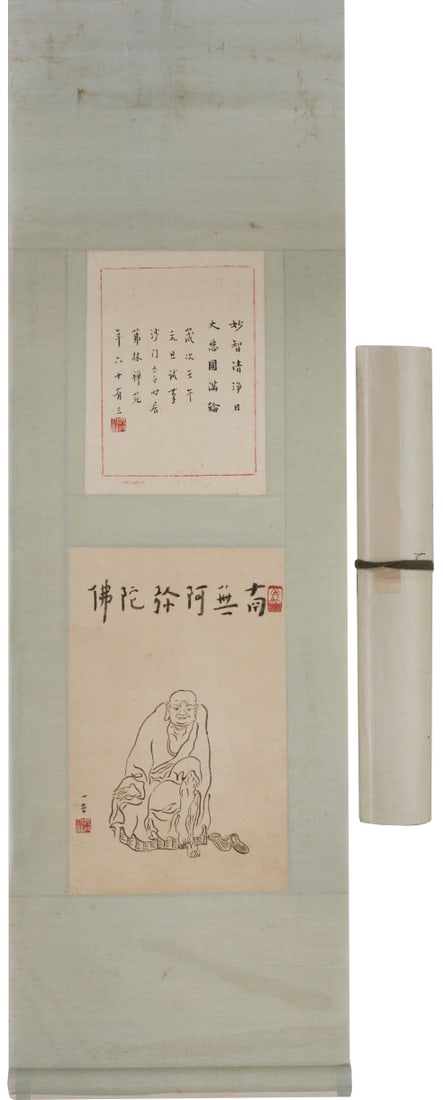 妙智清淨日
大悲圓滿輪
歲次壬午
元旦試筆
沙門時居
林禪苑
年六十有三
南無阿弥陀佛
一音